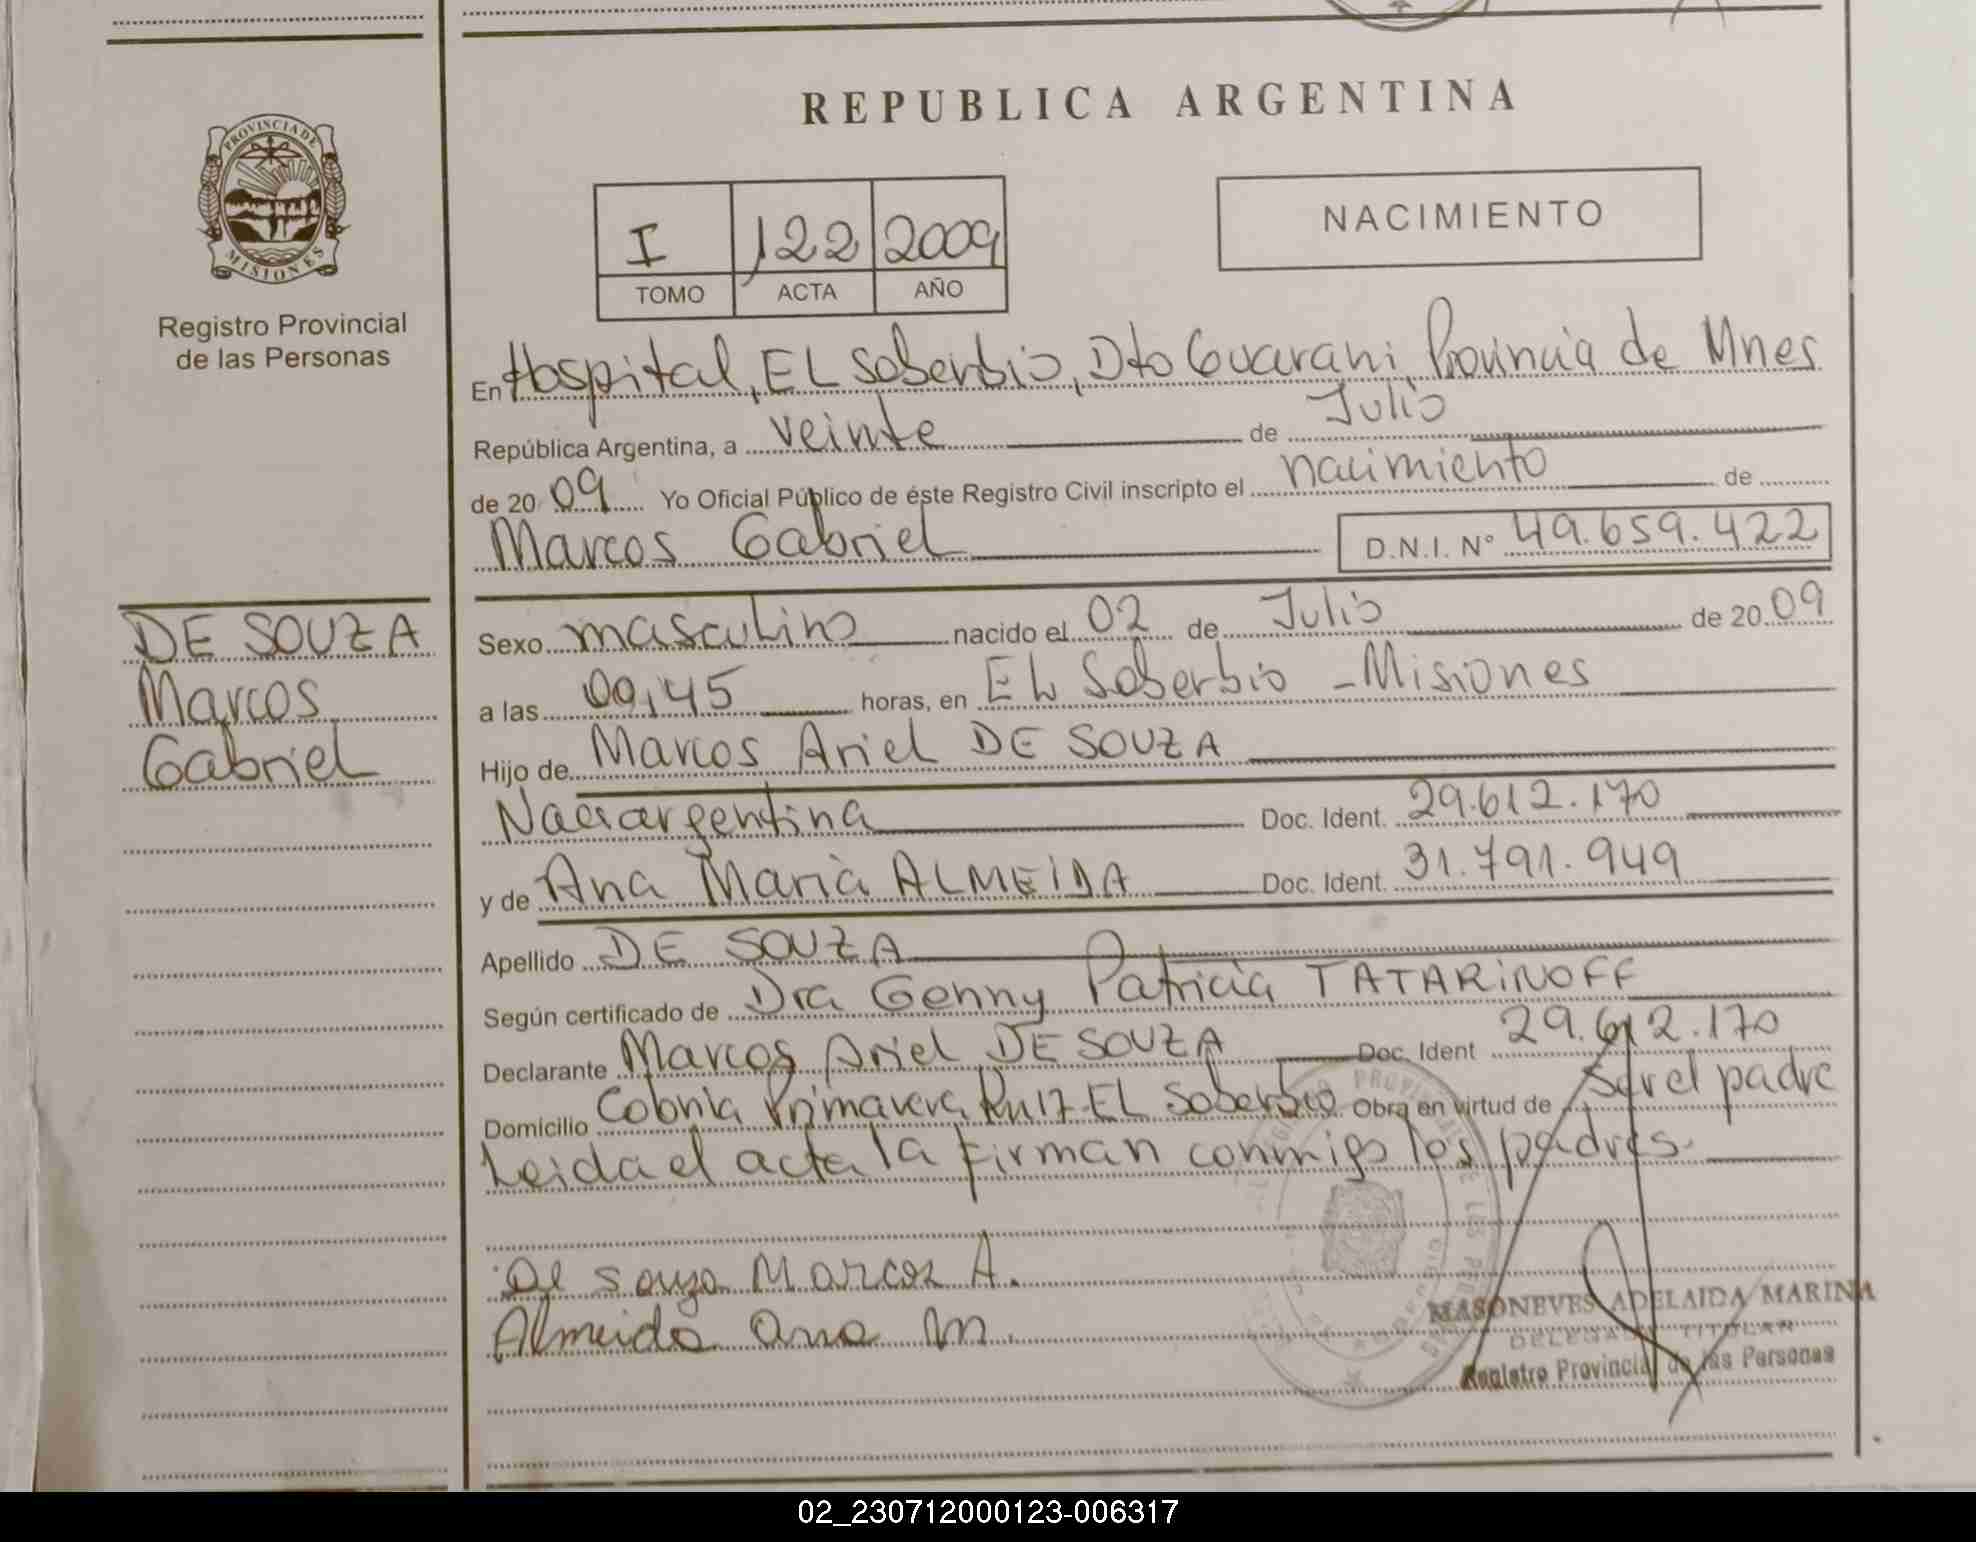 REPUBLICA ARGENTINA
PROVINCIA DE
MISIONES
Registro Provincial
de las Personas
I 122 2009
TOMO ACTA AÑO
NACIMIENTO
En Hospital, EL Soberbio, Dto Guarani, Provincia de Mnes
República Argentina, a veinte de Julio
de 20 09 Yo Oficial Público de éste Registro Civil inscripto el nacimiento de
Marcos Gabriel D.N.I. Nº 49.659.422
DE SOUZA
Marcos
Gabriel
Sexo masculino nacido el 02 de Julio de 20 09
a las 00,45 horas, en EL Soberbio - Misiones
Hijo de Marcos Ariel DE SOUZA
argentina Doc. Ident. 29.612.170
y de Ana Maria ALMEIDA Doc. Ident. 31.791.949
Apellido DE SOUZA
Según certificado de Dra Genny Patricia TATARINOFF
Declarante Marcos Ariel DE SOUZA Doc. Ident 29.612.170
Domicilio Colonia Primavera, EL Soberbio Obra en virtud de ser el padre
Leida el acta la firman conmigo los padres.
De souza Marcos A.
Almeida Ana M.
MASONEVES ADELAIDA MARINA
DELEGADA TITULAR
Registro Provincial de las Personas
02_230712000123-006317